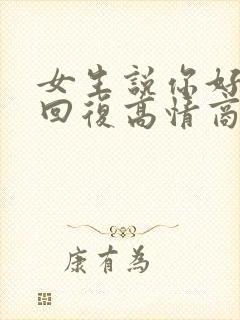 女生説你好
回復高情商
康有為